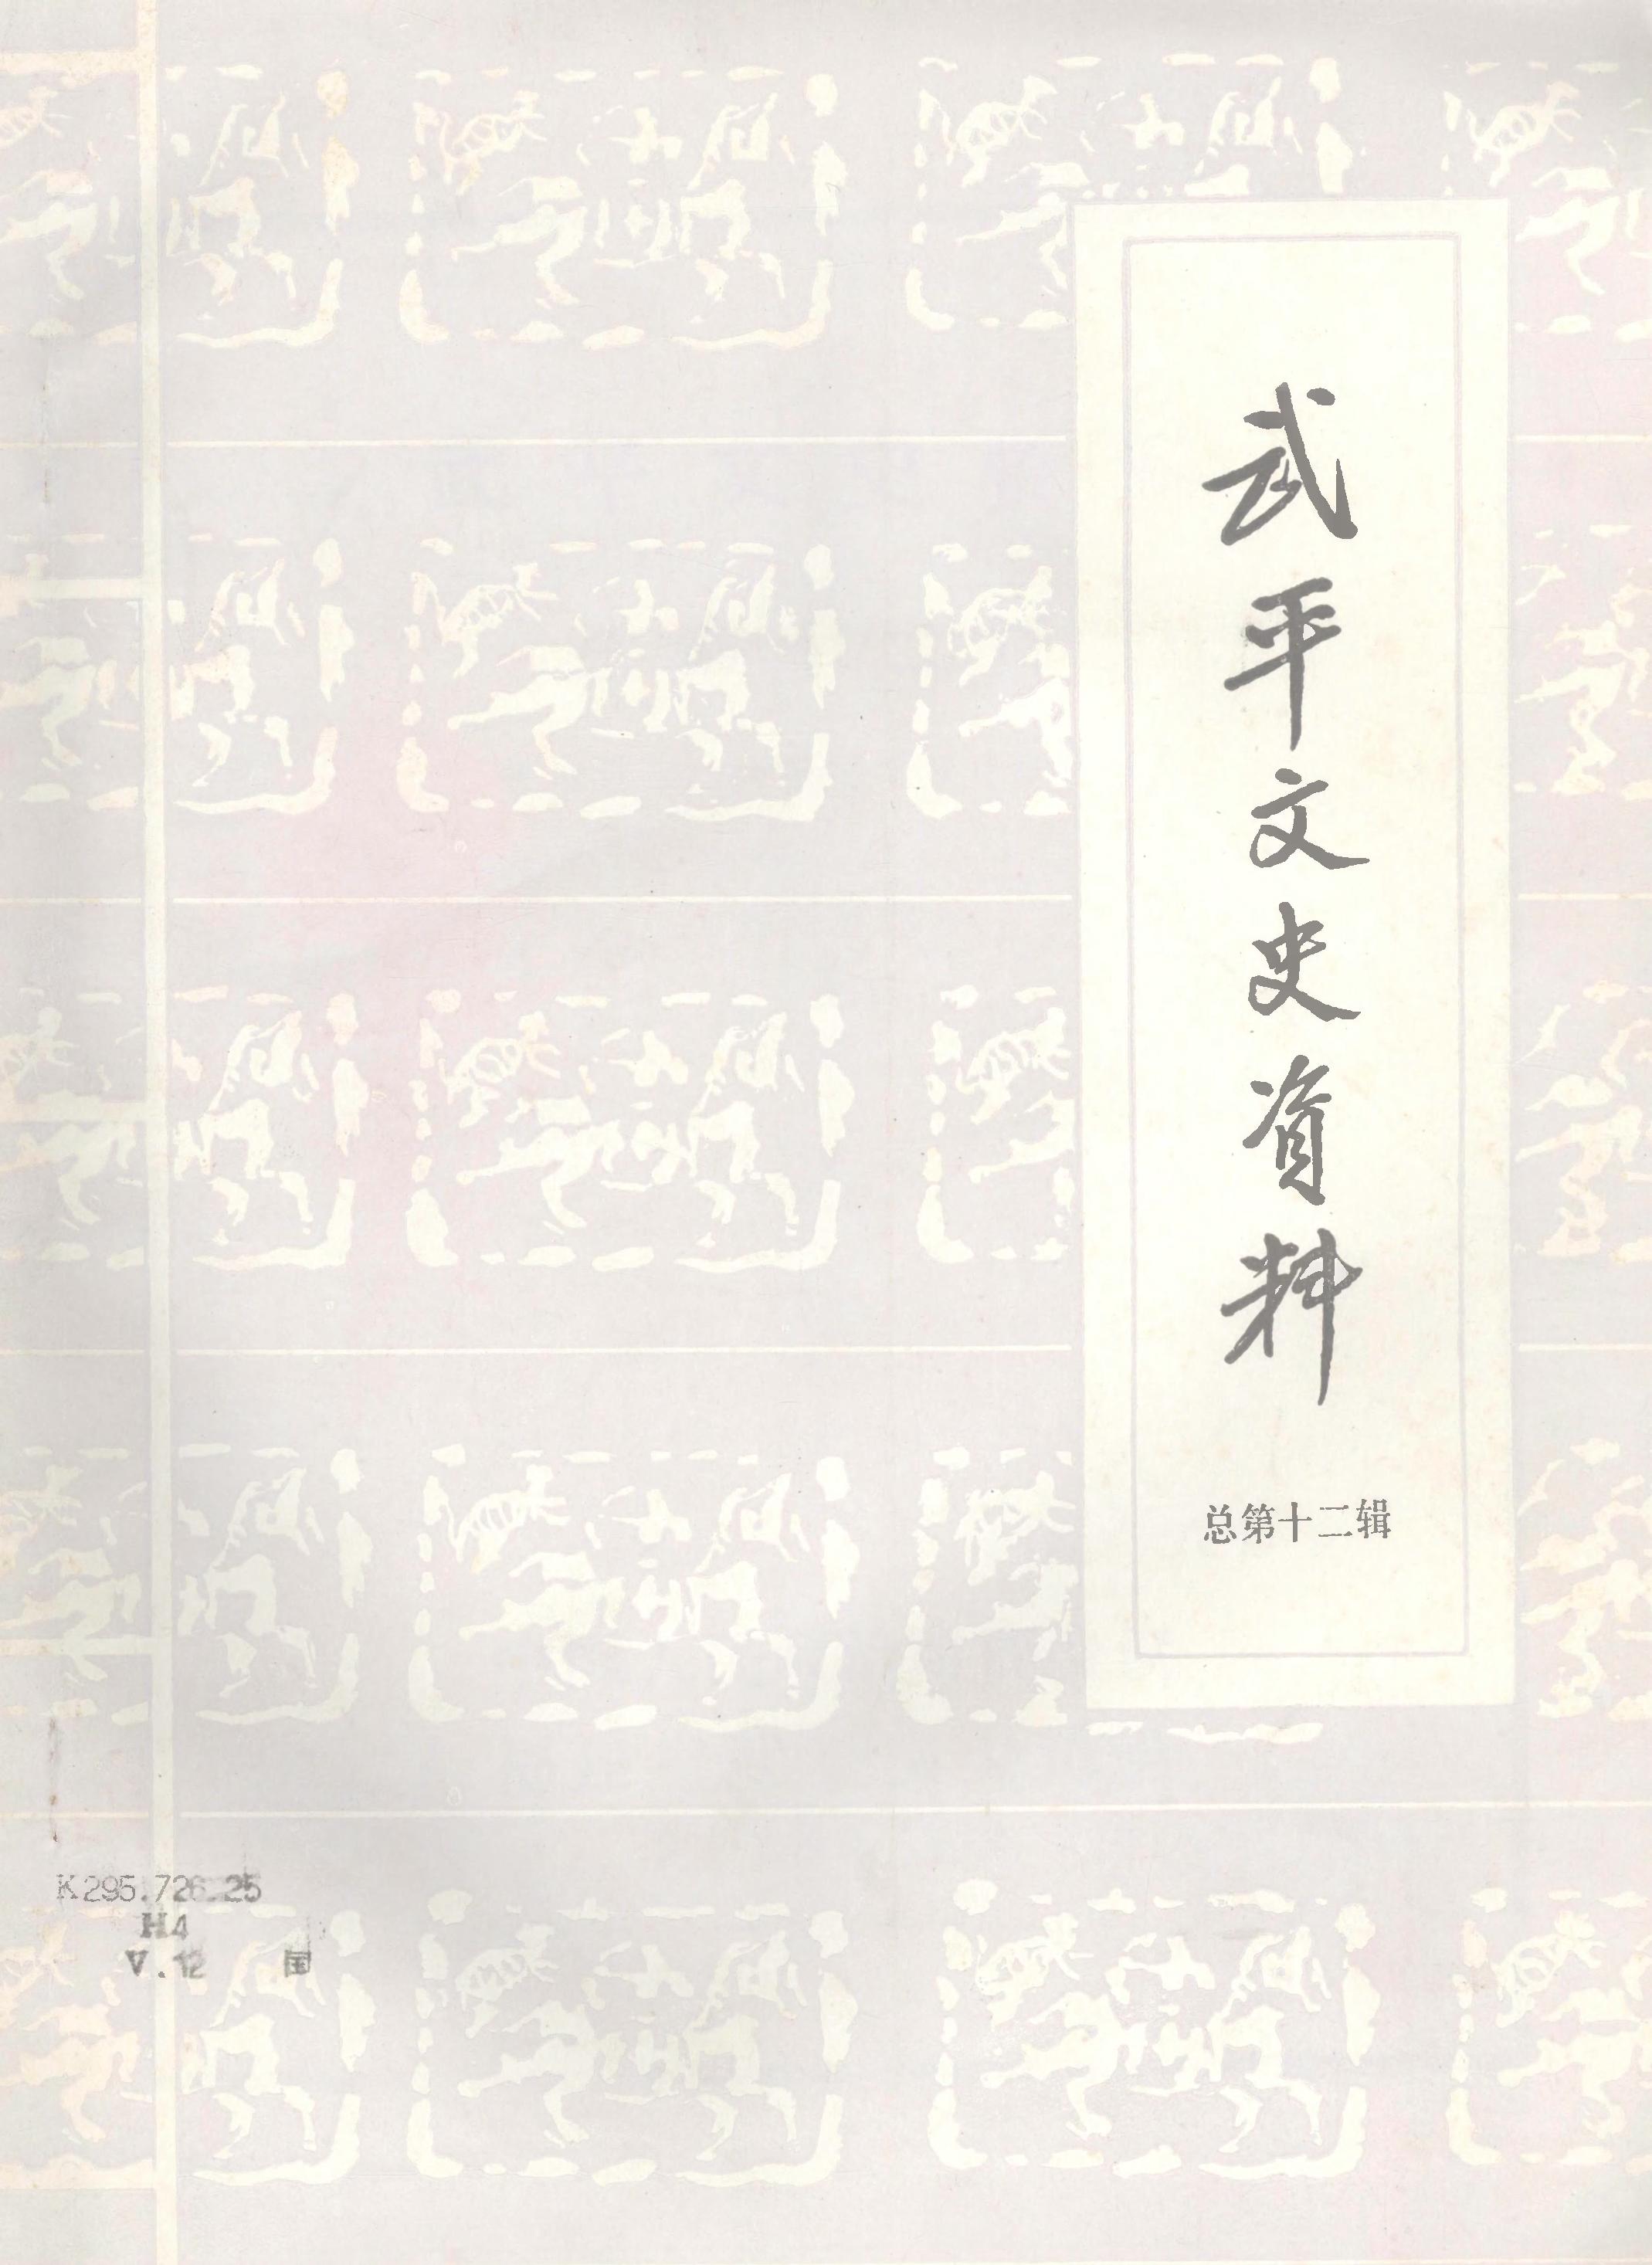 武平文史资料
总第十二辑
K295.726.25
H4
V.12 国